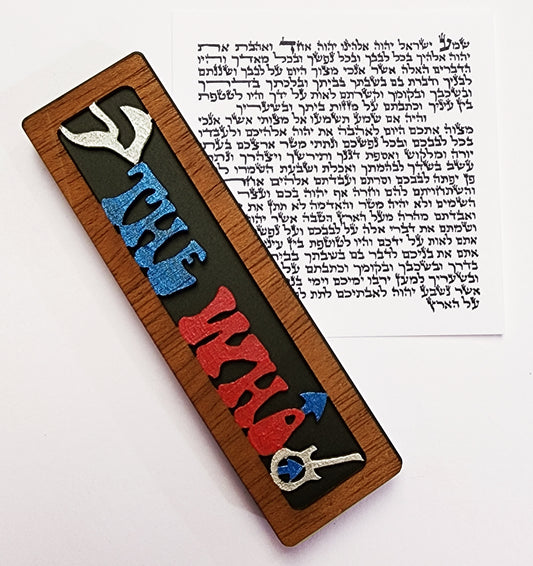 ש
THE
WHO
שמע ישראל יהוה אלהינו יהוה אחד ואהבת את
יהוה אלהיך בכל לבבך ובכל נפשך ובכל מאדך והיו
הדברים האלה אשר אנכי מצוך היום על לבבך ושננתם
לבניך ודברת בם בשבתך בביתך ובלכתך בדרך
ובשכבך ובקומך וקשרתם לאות על ידך והיו לטטפת
בין עיניך וכתבתם על מזזות ביתך ובשעריך
והיה אם שמע תשמעו אל מצותי אשר אנכי
מצוה אתכם היום לאהבה את יהוה אלהיכם ולעבדו
בכל לבבכם ובכל נפשכם ונתתי מטר ארצכם בעתו
יורה ומלקוש ואספת דגנך ותירשך ויצהרך ונתתי
עשב בשדך לבהמתך ואכלת ושבעת השמרו
פן יפתה לבבכם וסרתם ועבדתם אלהים
והשתחויתם להם וחרה אף יהוה בכם ועצר
השמים ולא יהיה מטר והאדמה לא תתן את
ואבדתם מהרה מעל הארץ הטבה אשר
ושמתם את דברי אלה על לבבכם ועל
אתם לאות על ידכם והיו לטוטפת בין
אתם את בניכם לדבר בם בשבתך
בדרך ובשכבך ובקומך וכתבתם
ובשעריך למען ירבו ימיכם וימי
אשר נשבע יהוה לאבתיכם לתת
על הארץ